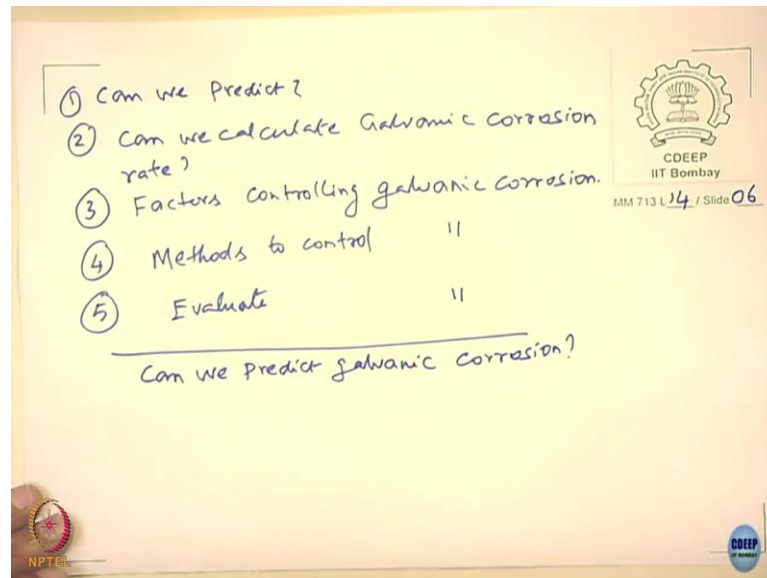 ① Can we Predict?
② Can we calculate Galvanic corrosion
rate?
③ Factors controlling galvanic corrosion.
④ Methods to control "
⑤ Evaluate "
Can we predict galvanic corrosion?
CDEEP
IIT Bombay
MM 713 L 14 / Slide 06
NPTEL
CDEEP
IIT BOMBAY